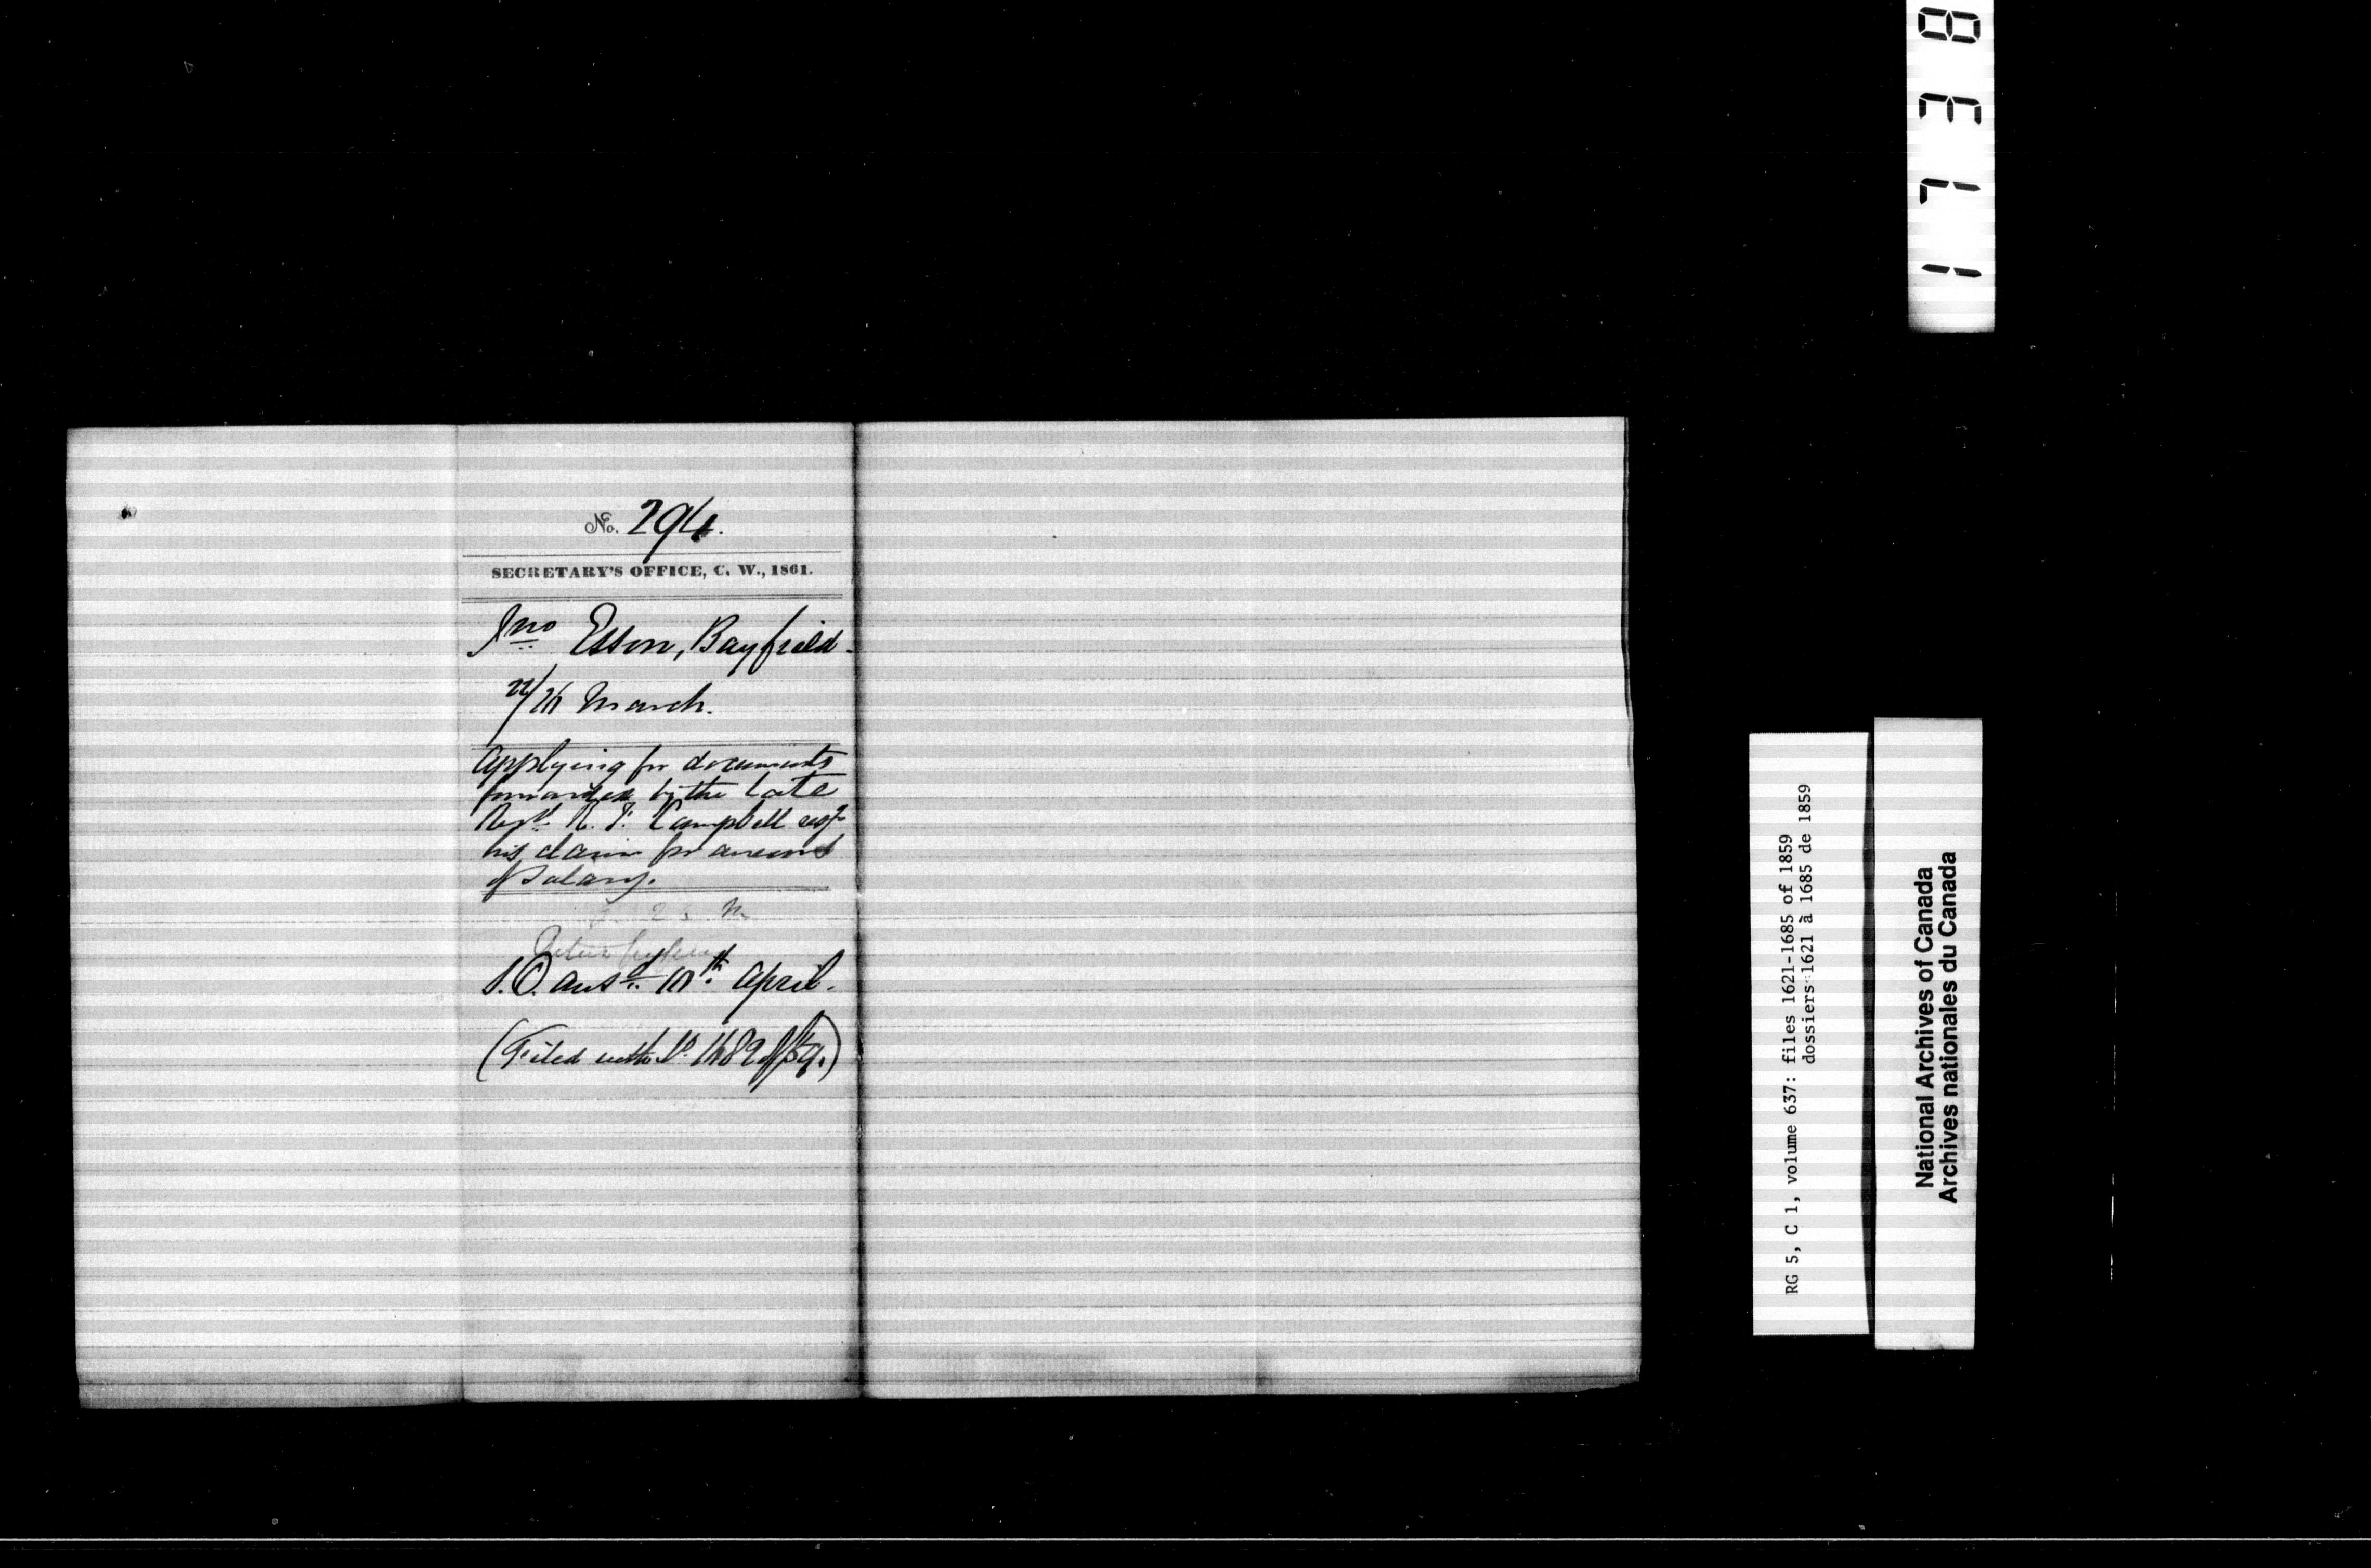 No. 294.
SECRETARY'S OFFICE, C. W., 1861.
Jno Esson, Bayfield.
22/26 March.
Applying for documents
forwarded by the late
R. F. Campbell resp
his claim for amount
of Salary.
S.O. ansd. 10th April.
(Filed with No. 1682 of 59.)
1738
RG 5, C 1, volume 637: files 1621-1685 of 1859
dossiers 1621 à 1685 de 1859
National Archives of Canada
Archives nationales du Canada